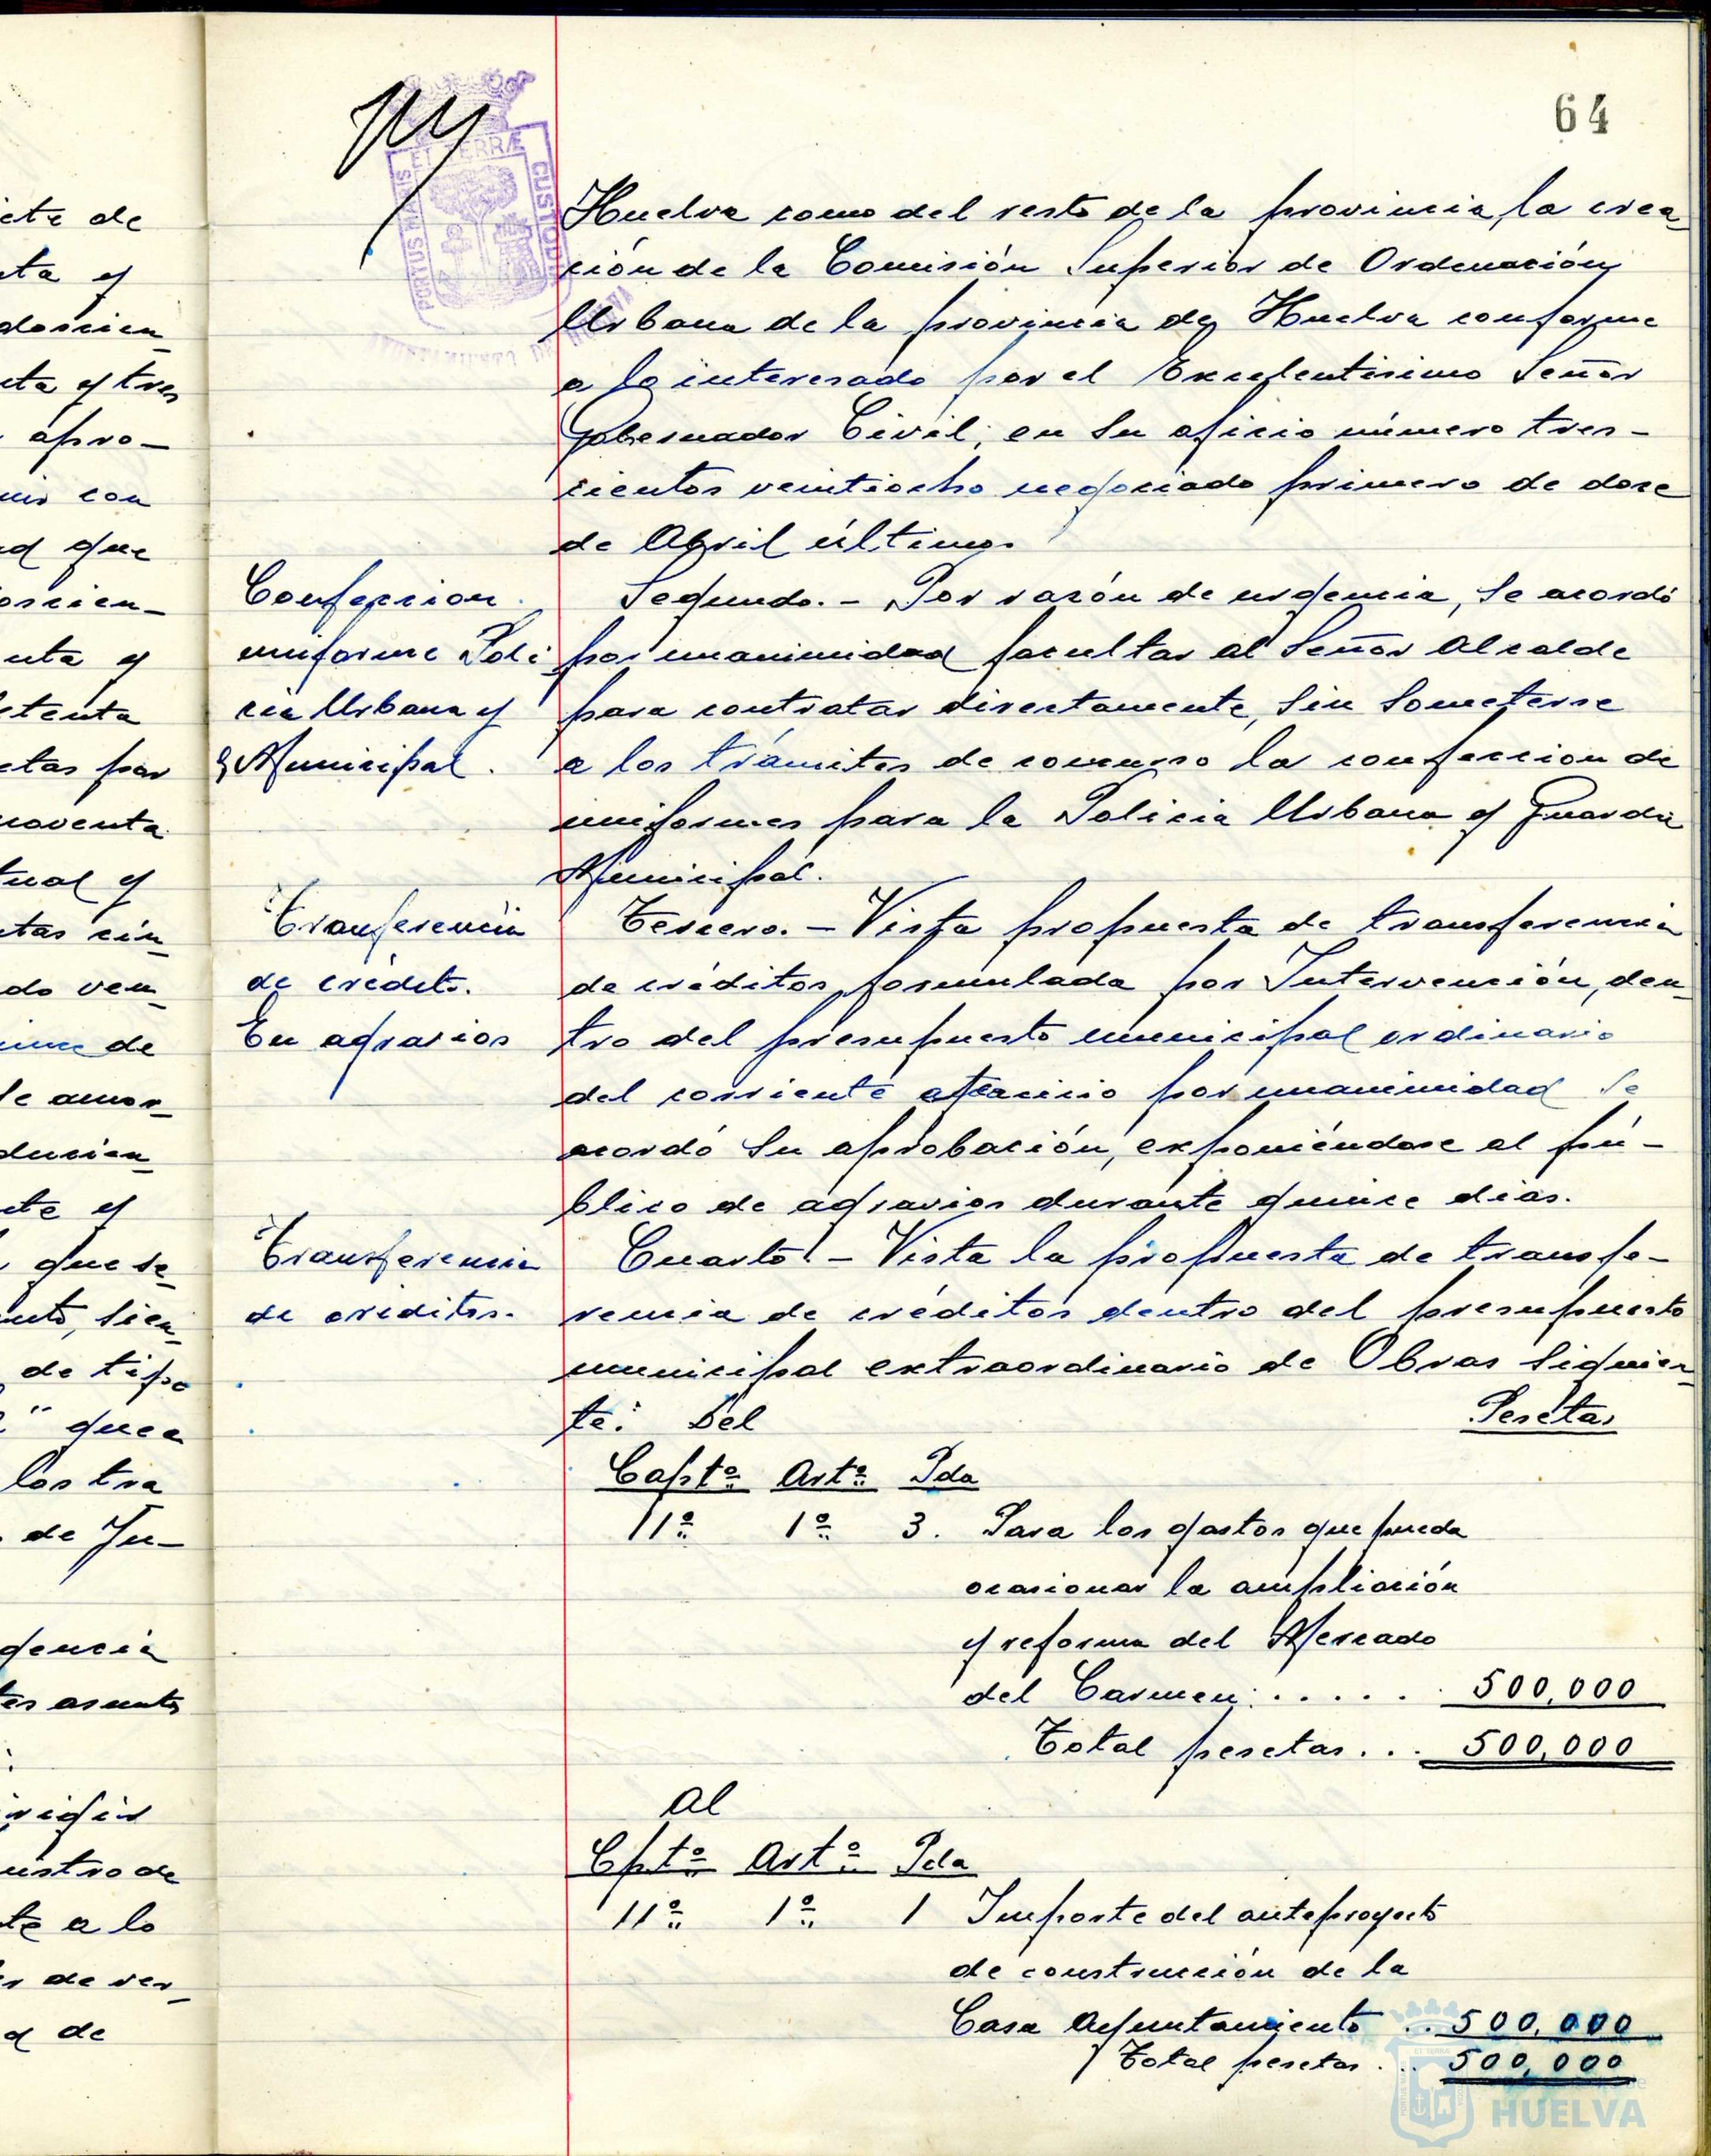 64
ET TERRÆ
PORTUS MARIS
CUSTODI
Huelva como del resto de la provincia, la crea
ción de la Comisión Superior de Ordenación
Urbana de la provincia de Huelva conforme
a lo interesado por el Excelentísimo Señor
Gobernador Civil, en su oficio número tres-
cientos veintiocho negociado primero de doce
de Abril último.
Confeccion
uniforme Poli
cia Urbana y
Municipal.
Segundo.- Por razón de urgencia, se acordó
por unanimidad facultar al Señor Alcalde
para contratar directamente, sin someterse
a los trámites de concurso la confeccion de
uniformes para la Policia Urbana y Guardia
Municipal.
Transferencia
de crédito.
En agravios
Tercero.- Vista propuesta de transferencia
de créditos, formulada por Intervención, den
tro del presupuesto municipal ordinario
del corriente ejercicio por unanimidad se
acordó su aprobación, exponiéndose al pú-
blico de agravios durante quince dias.
Transferencia
de créditos.
Cuarto.- Vista la propuesta de transfe-
rencia de créditos dentro del presupuesto
municipal extraordinario de Obras siguien
te: Del Pesetas
Capto Arto Pda
11º 1º 3. Para los gastos que pueda
ocasionar la ampliación
y reforma del Mercado
del Carmen ..... 500,000
Total pesetas... 500,000
Al
Cpto Arto Pda
11º 1º 1 Importe del anteproyecto
de construcción de la
Casa Ayuntamiento .. 500.000
Total pesetas ... 500,000
HUELVA
ete de
ta y
doscien
ta y tres
apro-
con
d que
oscien-
nta y
etenta
etas por
noventa
tual y
etas cin
do ven
de
te y
que se
de tipo
" que a
los tra
de Ju-
gencia
es asunto
te a lo
de